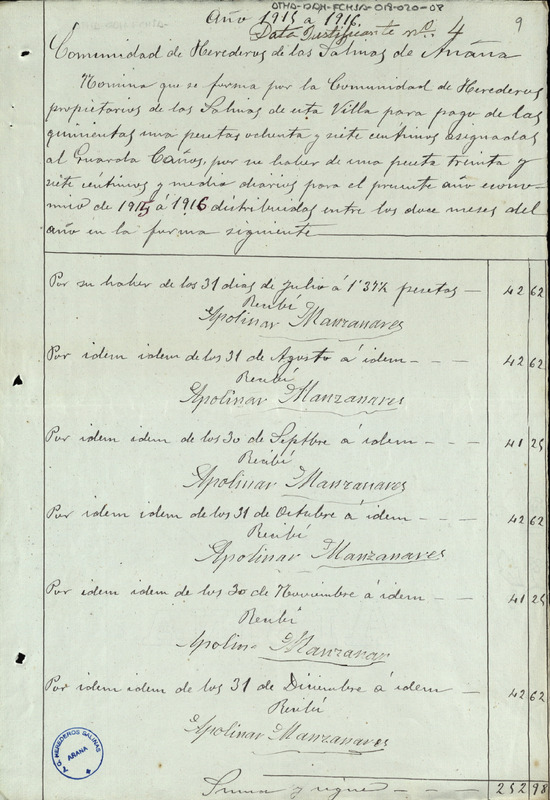 OTHA-DAH-FCHSA-018-020-08
Año 1915 a 1916
Data Justificante nº 4
9
Comunidad de Herederos de las Salinas de Añana
Nomina que se forma por la Comunidad de Herederos
propietarios de las Salinas de esta Villa para pago de las
quinientas una pesetas ochenta y siete centimos asignadas
al Guarda Caños, por su haber de una peseta treinta y
siete céntimos y medio diarios para el presente año econo-
mico de 1915 á 1916 distribuidas entre los doce meses del
año en la forma siguiente
Por su haber de los 31 dias de Julio á 1'37½ pesetas — 42 62
Recibí
Apolinar Manzanares
Por idem idem de los 31 de Agosto á idem - - - 42 62
Recibí
Apolinar Manzanares
Por idem idem de los 30 de Septbre á idem - - - 41 25
Recibí
Apolinar Manzanares
Por idem idem de los 31 de Octubre á idem - - - 42 62
Recibí
Apolinar Manzanares
Por idem idem de los 30 de Noviembre á idem - - - 41 25
Recibí
Apolina Manzanar
Por idem idem de los 31 de Diciembre á idem - - - 42 62
Recibí
Apolinar Manzanares
Suma y sigue - - - 252 98
HEREDEROS SALINAS
AÑANA